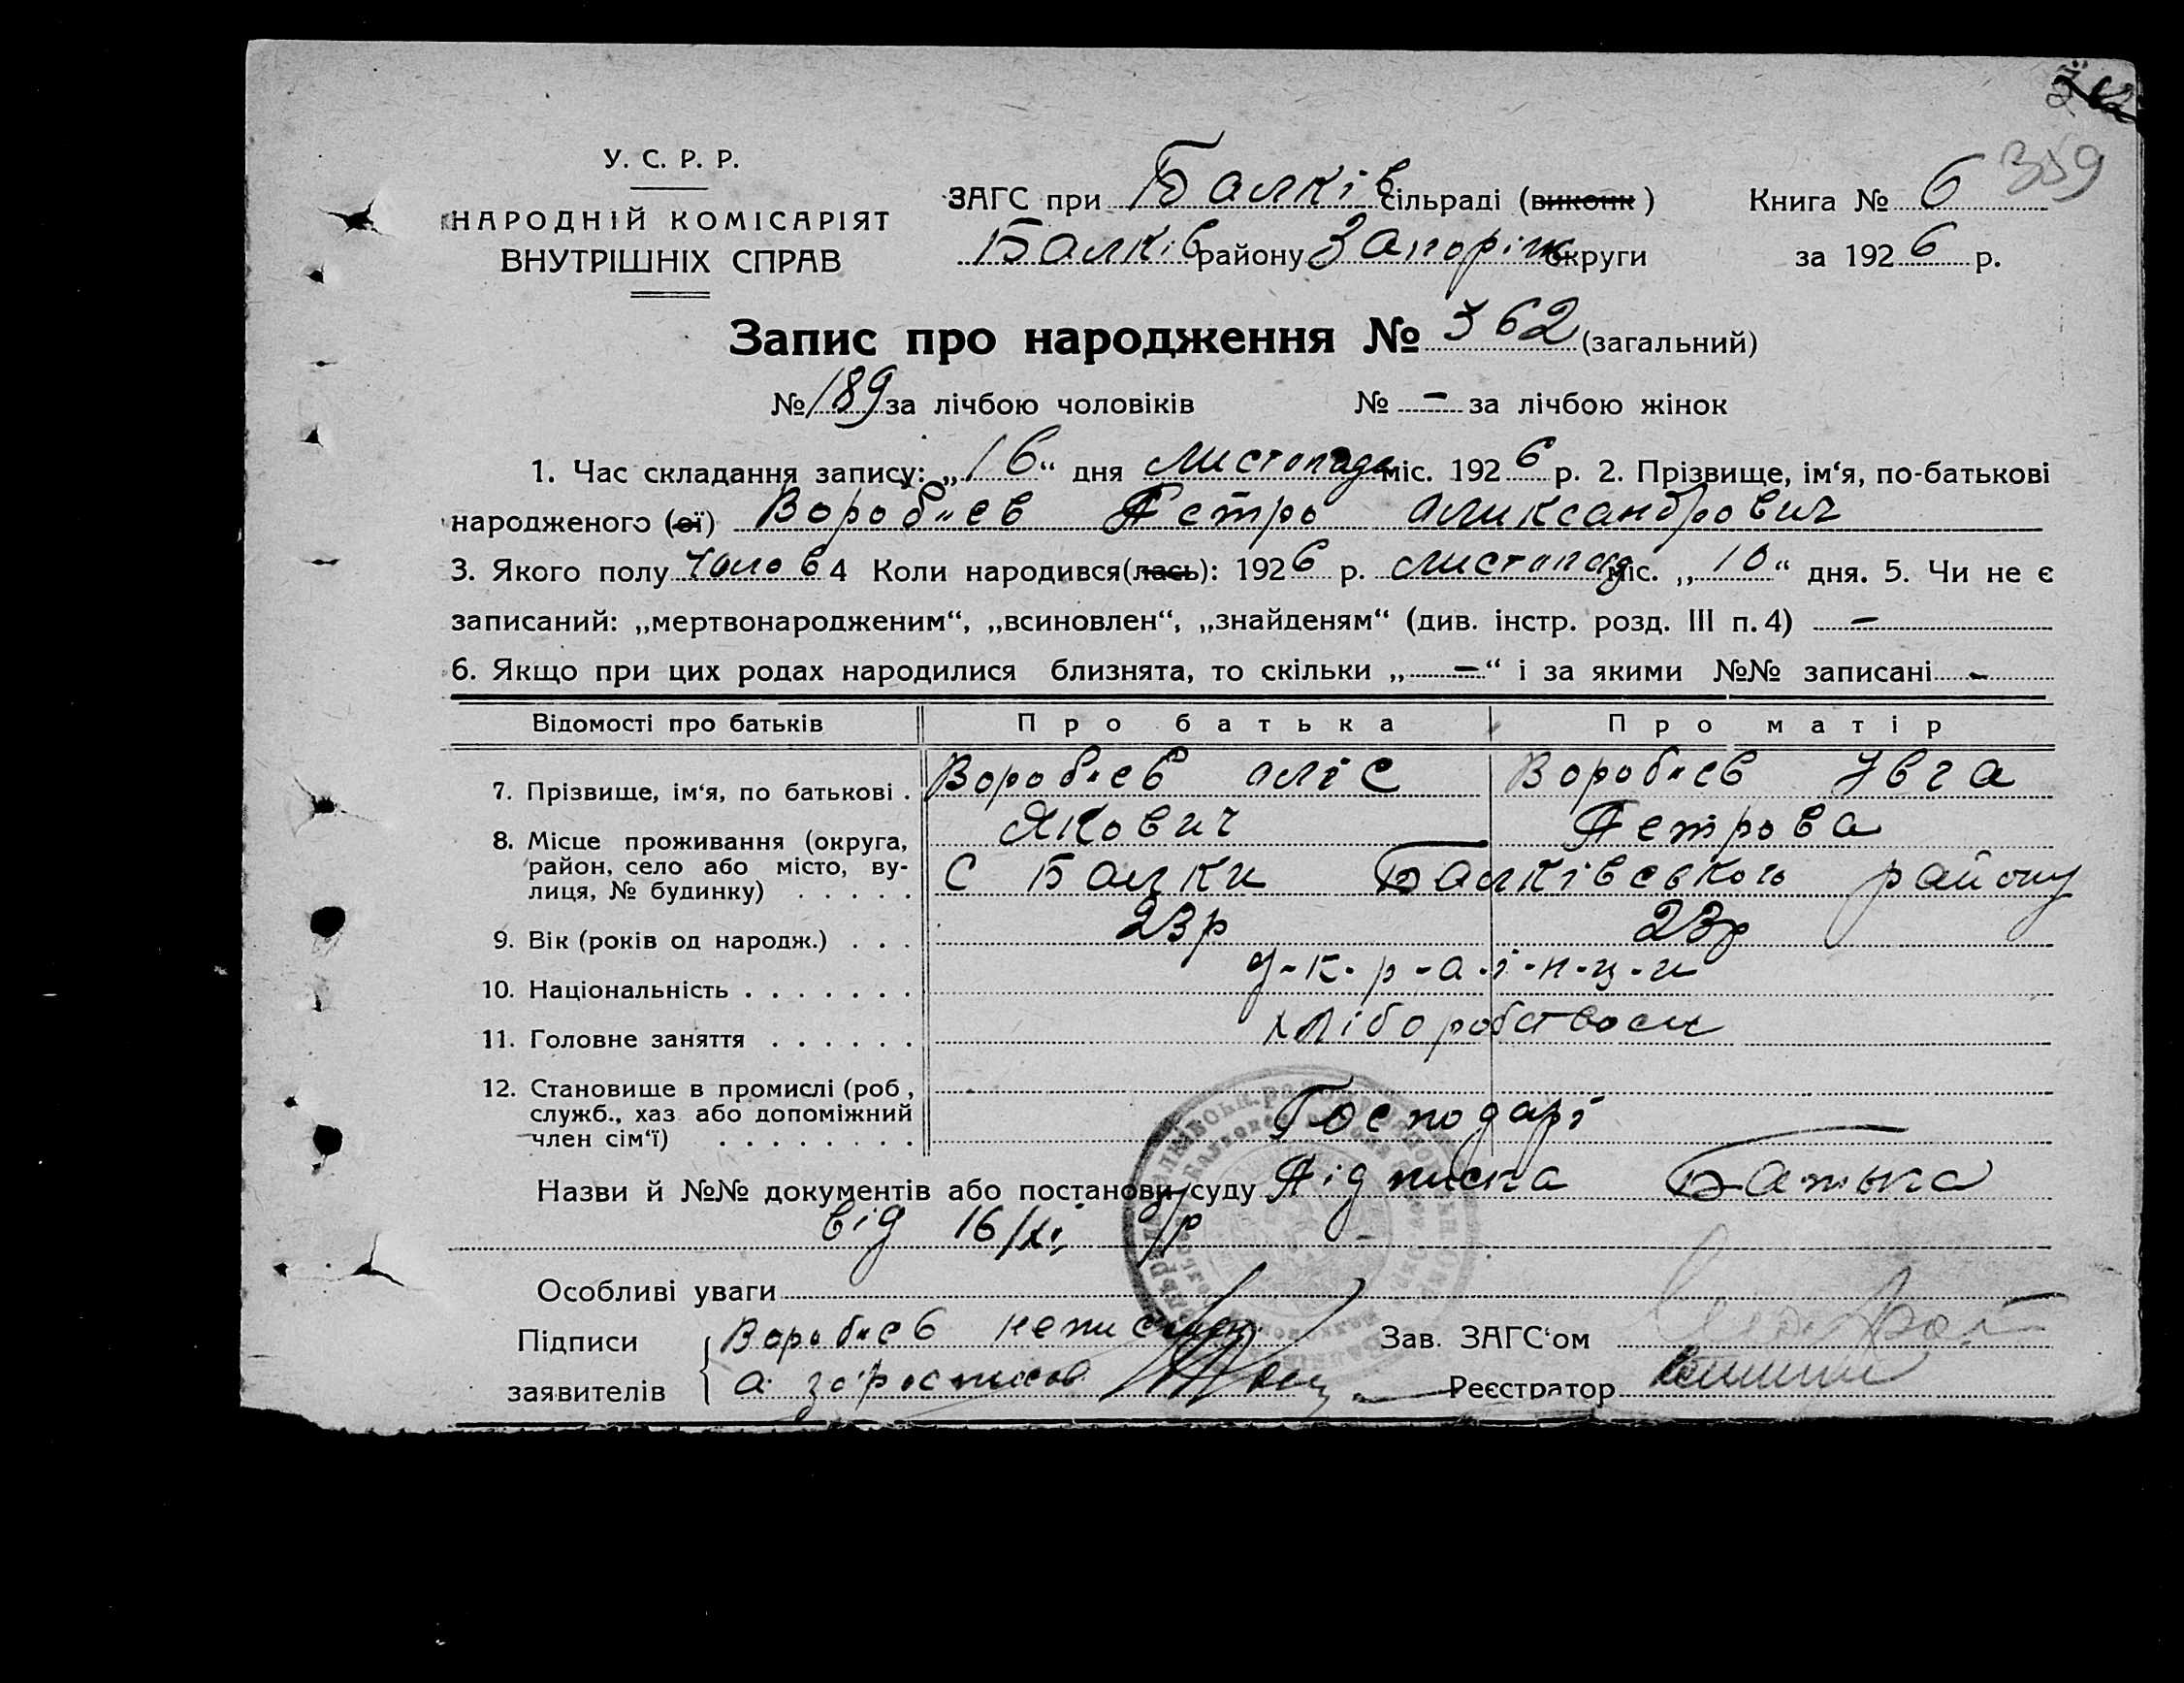 359
У. С. Р. Р.
НАРОДНІЙ КОМІСАРІЯТ
ВНУТРІШНІХ СПРАВ
ЗАГС при Балків сільраді (виконк) Книга № 6
Балків району Запоріж округи за 1926 р.
Запис про народження № 362 (загальний)
№ 189 за лічбою чоловіків № - за лічбою жінок
1. Час складання запису: „16“ дня листопада міс. 1926 р. 2. Прізвище, ім‘я, по-батькові
народженого (ої) Воробиєв Петро Аликсандрович
3. Якого полу чолов 4 Коли народився(лась): 1926 р. листопад міс. „10“ дня. 5. Чи не є
записаний: „мертвонародженим“, „всиновлен“, „знайденям“ (див. інстр. розд. III п. 4) -
6. Якщо при цих родах народилися близнята, то скільки „-“ і за якими №№ записані -
Відомості про батьків Про батька Про матір
7. Прізвище, ім‘я, по батькові . Воробиєв Воробиєв Ювга
Якович Петрова
8. Місце проживання (округа,
район, село або місто, ву-
лиця, № будинку) . . . . . С Балки Балківського району
9. Вік (років од народж.) . . . 23р 23р
10. Національність . . . . . . . у-к-р-а-ї-н-ц-и
11. Головне заняття . . . . . . хліборобством
12. Становище в промислі (роб ,
служб., хаз або допоміжний
член сім‘ї) . . . . . . . . Господарі
Назви й №№ документів або постанови суду Підписка Батька
від 16/XI р
Особливі уваги
Підписи Воробиєв Зав. ЗАГС‘ом
заявителів а Реєстратор